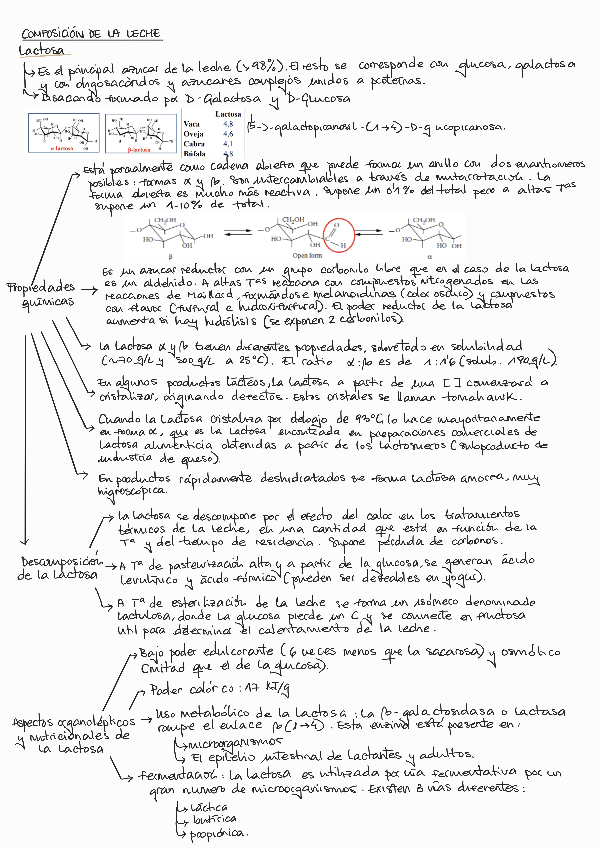 COMPOSICIÓN DE LA LECHE
Lactosa
Es el principal azucar de la leche (>98%). El resto se corresponde con glucosa, galactosa
y con oligosacáridos y azucares complejos unidos a proteinas.
Disacarido formado por D-Galactosa y D-Glucosa
α-lactosa
β-lactosa
Lactosa
Vaca 4,8
Oveja 4,6
Cabra 4,1
Búfala 4,8
β-D-galactopiranosil-(1→4)-D-glucopiranosa.
Está parcialmente como cadena abierta que puede formar un anillo con dos enantiomeros
posibles: formas α y β. Son intercambiables a través de mutarrotación. La
forma abierta es mucho más reactiva. Supone un 0'1% del total pero a altas Tas
supone un 1-10% de total.
CH₂OH
CH₂OH
CH₂OH
β
Open form
α
Propiedades
químicas
Es un azucar reductor con un grupo carbonilo libre que en el caso de la lactosa
es un aldehido. A altas Tas reacciona con compuestos nitrogenados en las
reacciones de Maillard, formándose melanoidinas (color oscuro) y compuestos
con flavor (furfural e hidroxifurfural). El poder reductor de la lactosa
aumenta si hay hidrólisis (se exponen 2 carbonilos).
La lactosa α y β tienen diferentes propiedades, sobretodo en solubilidad
(≈70 g/L y 500 g/L a 25°C). El ratio α:β es de 1:1'6 (solub. 180 g/L).
En algunos productos lácteos, la lactosa a partir de una [ ] comenzará a
cristalizar, originando defectos. Estos cristales se llaman tomahawk.
Cuando la lactosa cristaliza por debajo de 93°C, lo hace mayoritariamente
en forma α, que es la lactosa encontrada en preparaciones comerciales de
lactosa alimenticia obtenidas a partir de los lactosueros (subproducto de
industria de queso).
En productos rápidamente deshidratados se forma lactosa amorfa, muy
higroscópica.
Descomposición
de la lactosa
La lactosa se descompone por el efecto del calor en los tratamientos
térmicos de la leche, en una cantidad que está en función de la
Tª y del tiempo de residencia. Supone pérdida de carbonos.
A Tª de pasteurización alta y a partir de la glucosa, se generan ácido
levulínico y ácido fórmico (pueden ser deseables en yogur).
A Tª de esterilización de la leche se forma un isómero denominado
lactulosa, donde la glucosa pierde un C y se convierte en fructosa
Util para determinar el calentamiento de la leche.
Aspectos organolépticos
y nutricionales de
la lactosa
Bajo poder edulcorante (6 veces menos que la sacarosa) y osmótico
(mitad que el de la glucosa).
Poder calórico: 17 KJ/g
Uso metabólico de la lactosa: la β-galactosidasa o lactasa
rompe el enlace β(1→4). Esta enzima está presente en:
microorganismos
El epitelio intestinal de lactantes y adultos.
Fermentación: La lactosa es utilizada por vía fermentativa por un
gran numero de microorganismos. Existen 3 vías diferentes:
láctica
butírica
propiónica.